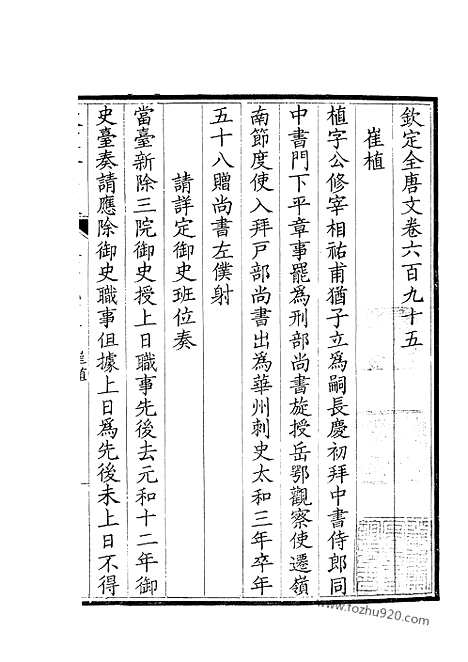 欽定全唐文卷六百九十五
崔植
植字公修宰相祐甫猶子立爲嗣長慶初拜中書侍郎同
中書門下平章事罷爲刑部尚書旋授岳鄂觀察使遷嶺
南節度使入拜戸部尚書出爲華州刺史太和三年卒年
五十八贈尚書左僕射
請詳定御史班位奏
當臺新除三院御史授上日職事先後去元和十二年御
史臺奏請應除御史職事但據上日爲先後未上日不得
崔植
www.fozhu920.com